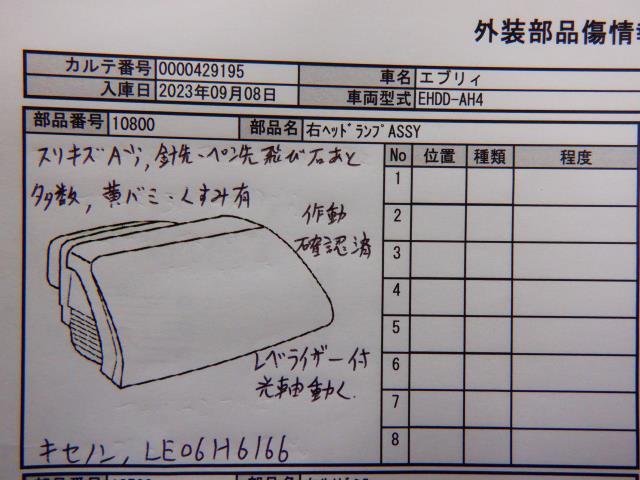 外装部品傷情報
カルテ番号 0000429195 車名 エブリィ
入庫日 2023年09月08日 車両型式 EHDD-AH4
部品番号 10800 部品名 右ヘッドランプASSY
スリキズA少,針先・ペン先飛び石あと
多数,黄バミ・くすみ有
作動
確認済
レベライザー付
光軸動く.
キセノン, LE06H6166
No 位置 種類 程度
1
2
3
4
5
6
7
8